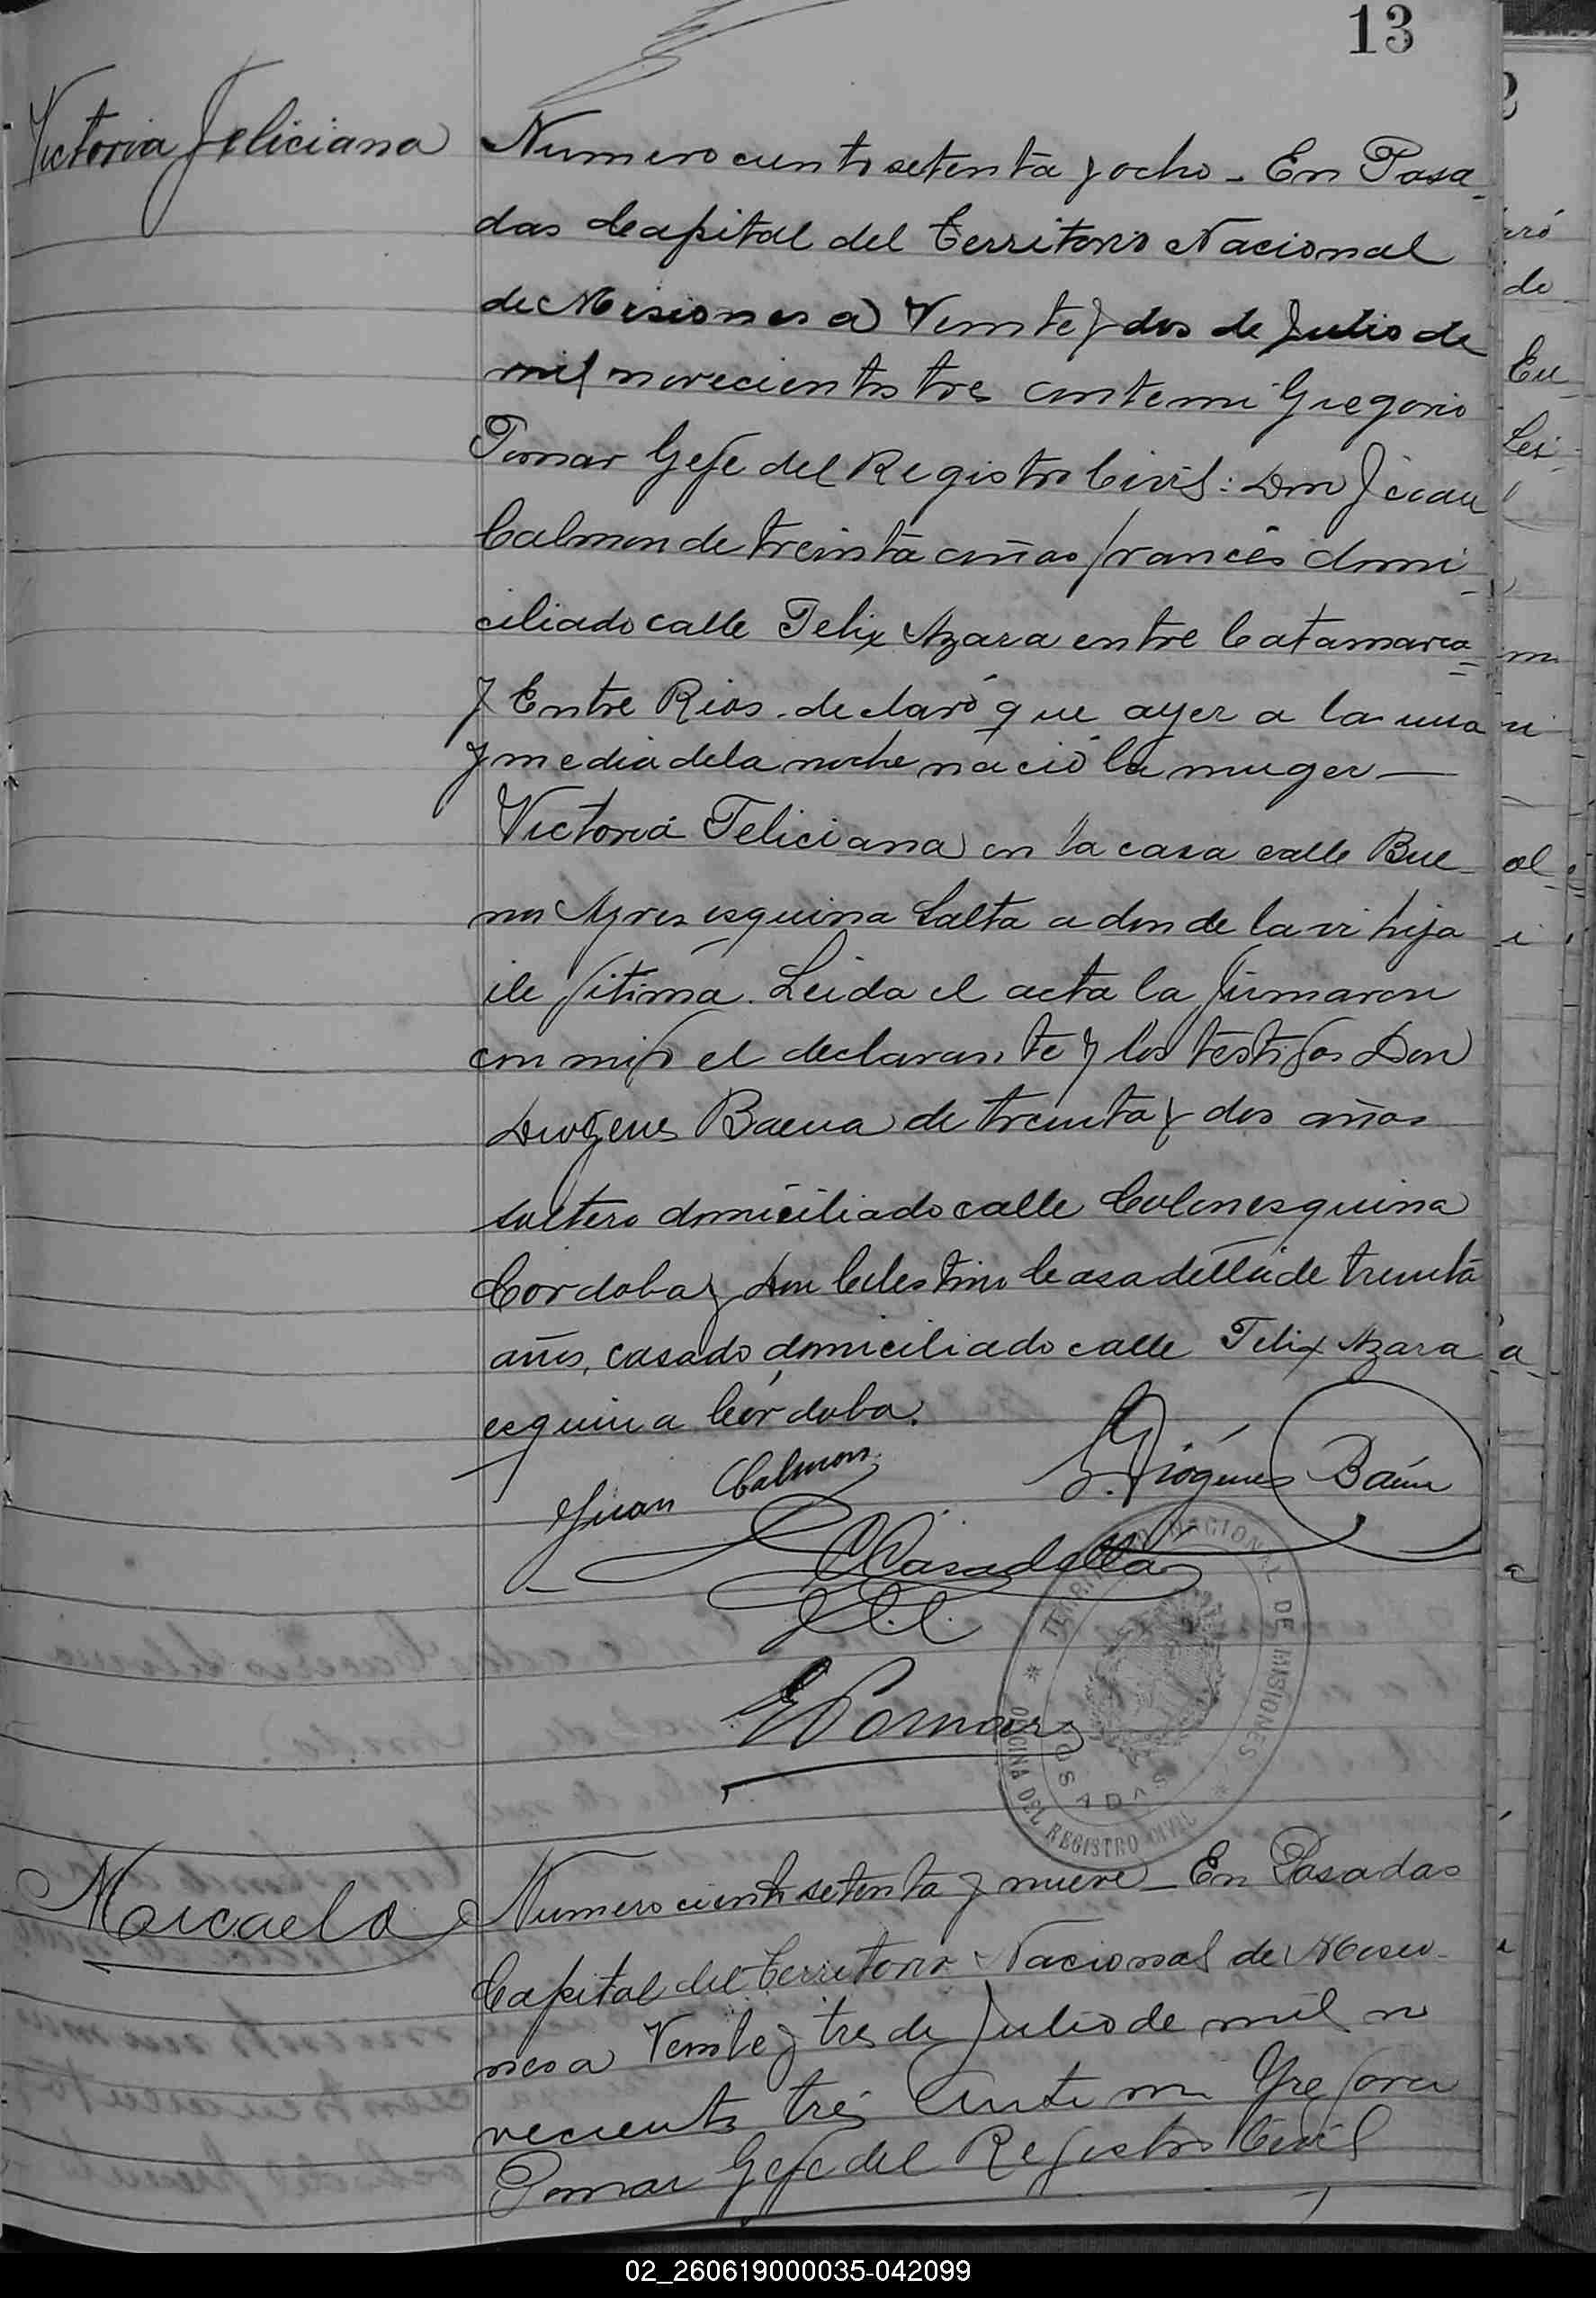 13
Victoria Feliciana
Numero ciento setenta y ocho - En Posa-
das Capital del Territorio Nacional
de Misiones a Veinte y dos de Julio de
mil novecientos tres ante mi Gregorio
Pomar Gefe del Registro Civil: Don Juan
Calmon de treinta años francés domi-
ciliado calle Felix Azara entre Catamarca
y Entre Rios. declaró que ayer a la una
y media de la noche nació la muger —
Victoria Feliciana en la casa calle Bue-
nos Ayres esquina Salta a donde la vi hija
ilegitima. Leida el acta la firmaron
conmigo el declarante y los testigos Don
Diogenes Baena de treinta y dos años
soltero domiciliado calle Colon esquina
Cordoba y Don Celestino Casadella de treinta
años, casado, domiciliado calle Felix Azara
esquina Córdoba.
Juan Calmon
Diógenes Baena
C Casadella
Pomar
TERRITORIO NACIONAL DE MISIONES
OFICINA DEL REGISTRO CIVIL
POSADAS
Micaela
Numero ciento setenta y nueve - En Posadas
Capital del Territorio Nacional de Misio-
nes a Veinte y tres de Julio de mil no
vecientos tres Ante mi Gregorio
Pomar Gefe del Registro Civil
02_260619000035-042099